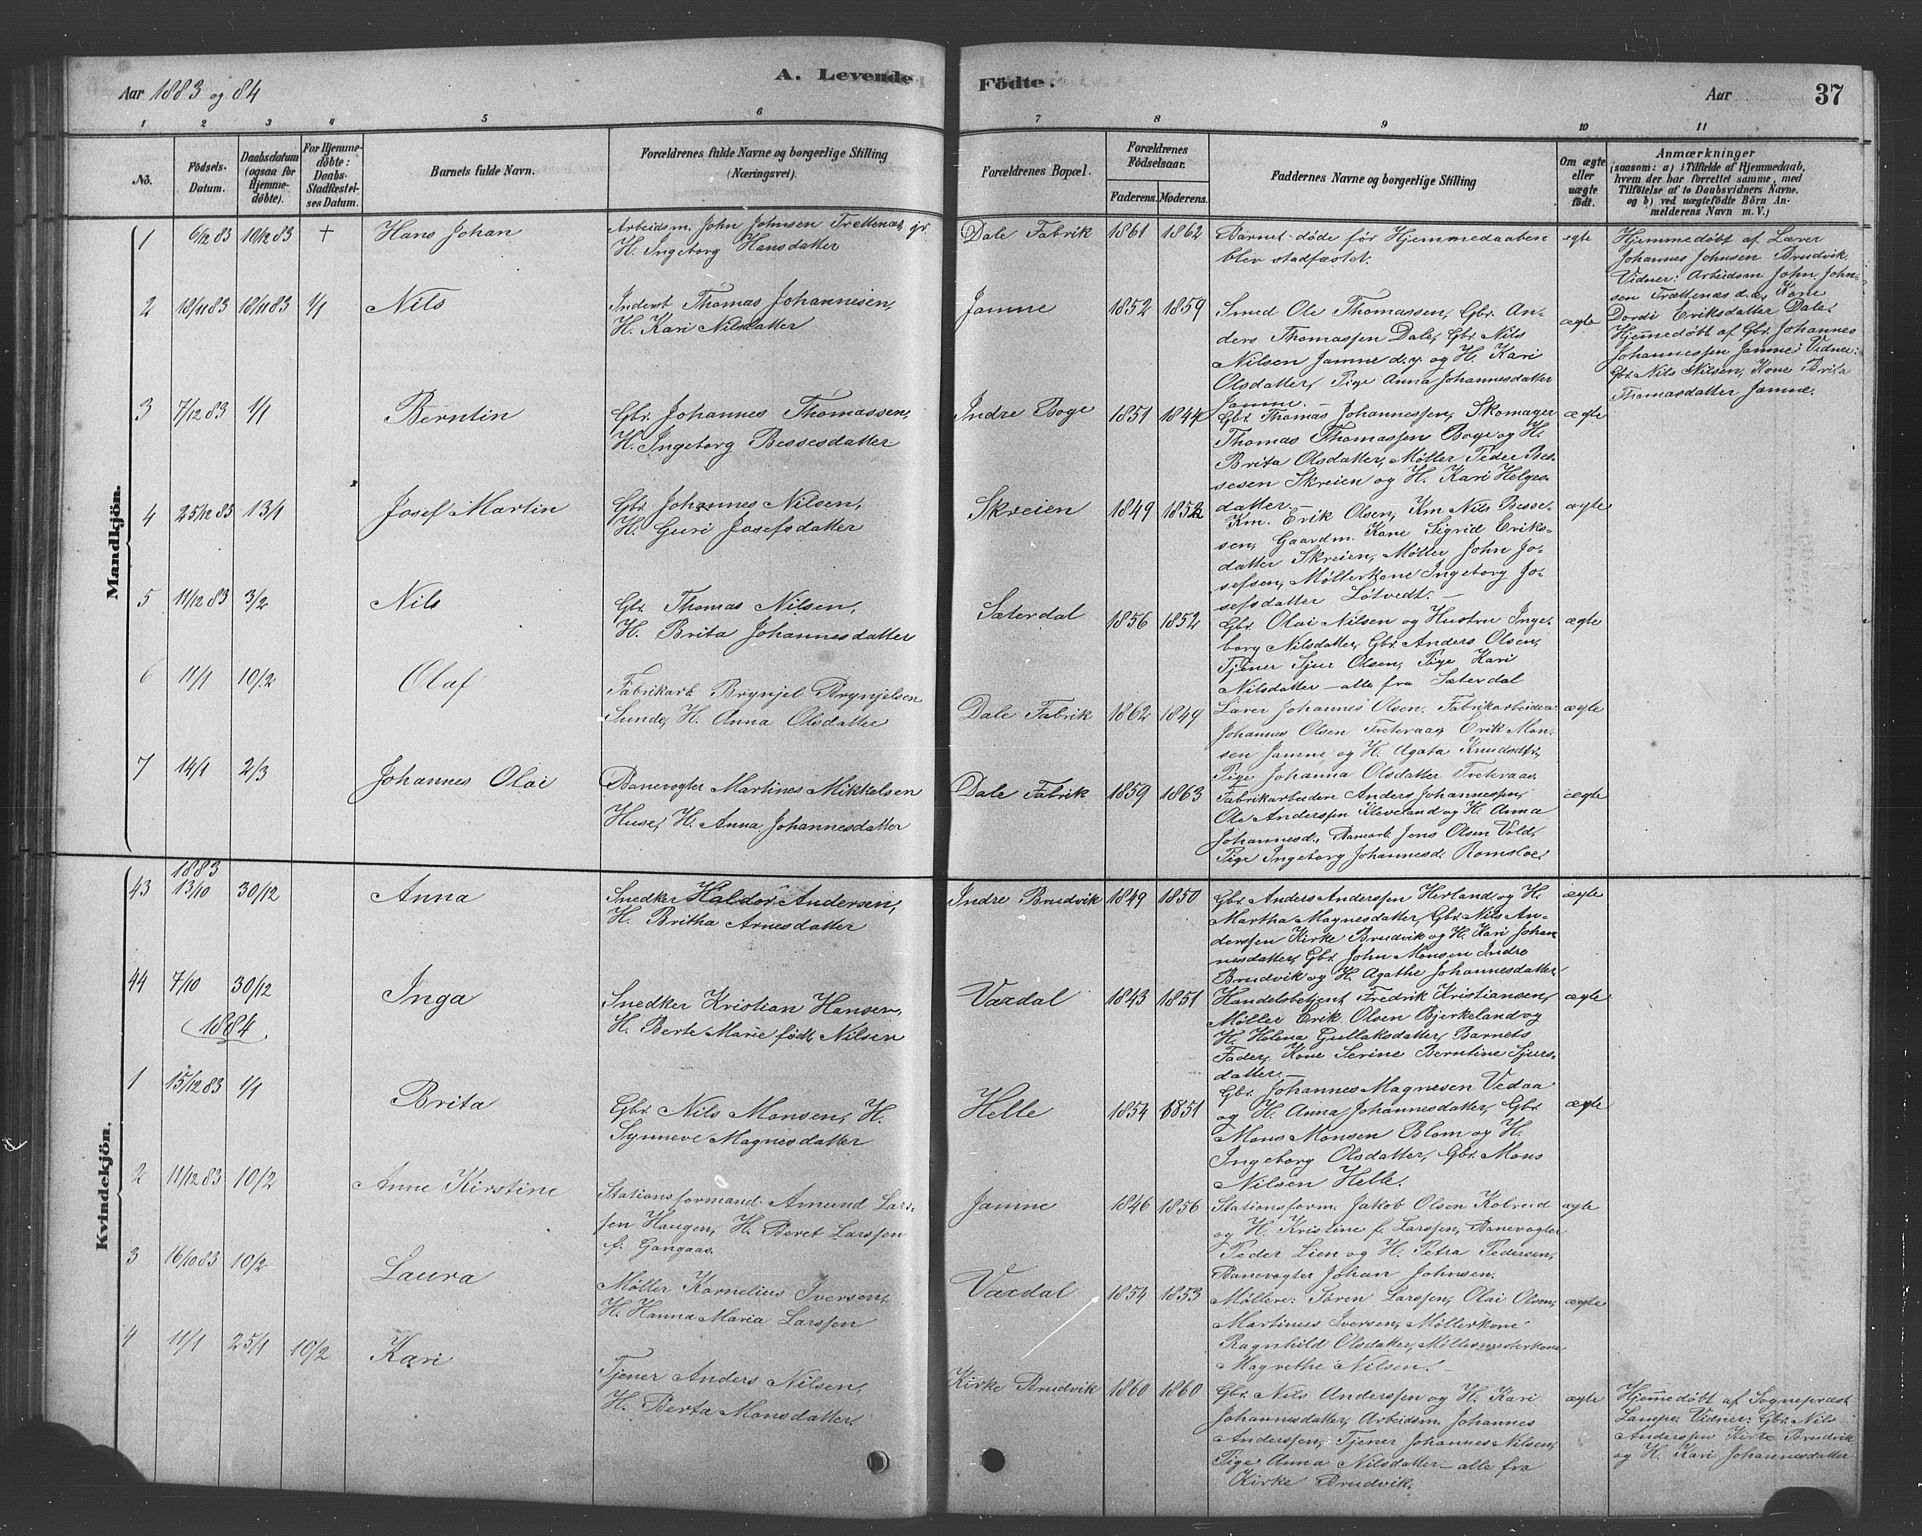 Aar 1883 og 84
A. Levende
Födte.
Aar
37
1 2 3 4 5 6 7 8 9 10 11
No.
Födsels-
Datum.
Daabsdatum
(ogsaa for
Hjemme-
döbte).
For Hjemme-
döbte:
Daabs-
Stadfæstel-
ses Datum.
Barnets fulde Navn.
Forældrenes fulde Navne og borgerlige Stilling
(Næringsvei).
Forældrenes Bopæl.
Forældrenes
Födselsaar.
Faderens. Moderens.
Faddernes Navne og borgerlige Stilling
Om ægte
eller
uægte
födt.
Anmærkninger
(saasom: a) i Tilfælde af Hjemmedaab,
hvem der har forrettet samme, med
Tilföielse af to Daabsvidners Navne,
og b) ved uægtefödte Börn An-
melderens Navn m. V.)
Mandkjön.
1 6/12 83 10/12 83 + Hans Johan
Arbeidsm. John Johnsen Trettenæs
H. Ingeborg Hansdatter
Dale Fabrik 1861 1862
Barnet døde før Hjemmedaaben
blev stadfæstet.
egte
Hjemmedøbt af Lærer
Johannes Johnsen Brudvik.
Vidner: Arbeidsm John John-
sen Trættenæs d.æ, Kone
Dordi Eriksdatter Dale.
2 18/11 83 18/11 83 1/1 Nils
Inderst Thomas Johannesen,
H. Kari Nilsdatter
Jamne 1852 1859
Smed Ole Thomassen, Gbr. An-
ders Thomassen Dale, Gbr. Nils
Nilsen Jamne d.y. og H. Kari
Olsdatter, Pige Anna Johannesdatter
Jamne. –
ægte
Hjemmedøbt af Gbr. Johannes
Johannessen Jamne; Vidner:
Gbr. Nils Nilsen, Kone Brita
Thomasdatter Jamne.
3 7/12 83 1/1 Berntin
Gbr. Johannes Thomassen,
H. Ingeborg Bessesdatter
Indre Boge 1851 1844
Gbr. Thomas Johannessen, Skomager
Thomas Thomassen Boge og H.
Brita Olsdatter, Møller Peder Bes-
sesen Skreien og H. Kari Helges-
datter –
ægte
4 25/12 83 13/1 Josef Martin
Gbr. Johannes Nilsen,
H. Guri Josefsdatter
Skreien 1849 1852
Km. Erik Olsen, Km Nils Besse-
sen, Gaardm. Kone Sigrid Eriks-
datter Skreien, Møller John Jo-
sefsen, Møllerkone Ingeborg Jo-
sefsdatter Lötvedt. –
ægte
5 11/12 83 3/2 Nils
Gbr. Thomas Nilsen,
H. Brita Johannesdatter
Sæterdal 1856 1852
Gbr. Olai Nilsen og Hustru Inge-
borg Nilsdatter, Gbr. Anders Olsen,
Tjener Sjur Olsen, Pige Kari
Nilsdatter – alle fra Sæterdal
ægte
6 11/1 10/2 Olaf
Fabrikarb. Brynjel Brynjelsen
Sunde, H. Anna Olsdatter
Dale Fabrik 1862 1849
Lærer Johannes Olsen. Fabrikarbeider
Johannes Olsen Tveteraas, Erik Mon-
sen Jamne og H. Agata Knudsdtr,
Pige Johanna Olsdatter Tveteraas.
ægte
7 14/1 2/3 Johannes Olai
Banevogter Martines Mikkelsen
Huse, H. Anna Johannesdatter
Dale Fabrik 1859 1863
Fabrikarbeidere Anders Johannessen,
Ole Anderssen Kleveland og H. Anna
Johannesd., Banearb. Jens Olsen Vold,
Pige Ingeborg Johannesd. Romsloe.
ægte
Kvindekjön.
1883
43 13/10 30/12 Anna
Snedker Haldor Andersen,
H. Britha Arnesdatter
Indre Brudvik 1849 1850
Gbr. Anders Anderssen Herland og H.
Martha Magnesdatter, Gbr. Nils An-
derssen Kirke Brudvik og H. Kari Johan-
nesdatter, Gbr. John Monsen Indre
Brudvik og H. Agathe Johannesdatter
ægte
44 7/10 30/12 Inga
Snedker Kristian Hansen,
H. Berte Marie født Nilsen
Vaxdal 1843 1851
Handelsbetjent Fredrik Kristiansen,
Møller Erik Olsen Bjerkeland og
H. Helena Gullaksdatter, Barnets
Fader, Kone Serine Berntine Sjurs-
datter. –
ægte
(1884.
1 15/12 83 1/1 Brita
Gbr. Nils Monsen, H.
Synneve Magnesdatter
Helle 1854 1851
Gbr. Johannes Magnesen Vedaa
og H. Anna Johannesdatter, Gbr.
Mons Monsen Blom og H.
Ingeborg Olsdatter, Gbr. Mons
Nilsen Helle.
ægte
2 11/12 83 10/2 Anne Kirstine
Stationsformand Amund Lars-
sen Haugen, H. Beret Larssen
f. Gangaas.
Jamne 1846 1856
Stationsform. Jakob Olsen Kolreid
og H. Kristine f. Larssen, Banevogter
Peder Lien og H. Petra Pedersen,
Banevogter Johan Johnsen.
ægte
3 16/10 83 10/2 Laura
Møller Kornelius Iversen,
H. Hanna Maria Larssen
Vaxdal 1854 1853
Møllere: Søren Larssen, Olai Olsen,
Martinus Iversen, Møllerkone
Ragnhild Olsdatter, Møllermesterkone
Magrethe Nilsen.
ægte
4 11/1 25/1 10/2 Kari
Tjener Anders Nilsen,
H. Berta Monsdatter.
Kirke Brudvik 1860 1860
Gbr. Nils Anderssen og H. Kari
Johannesdatter, Arbeidsm. Johannes
Anderssen, Tjener Johannes Nilsen,
Pige Anna Nilsdatter – alle fra
Kirke Brudvik.
ægte
Hjemmedøbt af Sogneprest
Lampe. Vidner: Gbr. Nils
Anderssen Kirke Brudvik
og H. Kari Johannesdatter